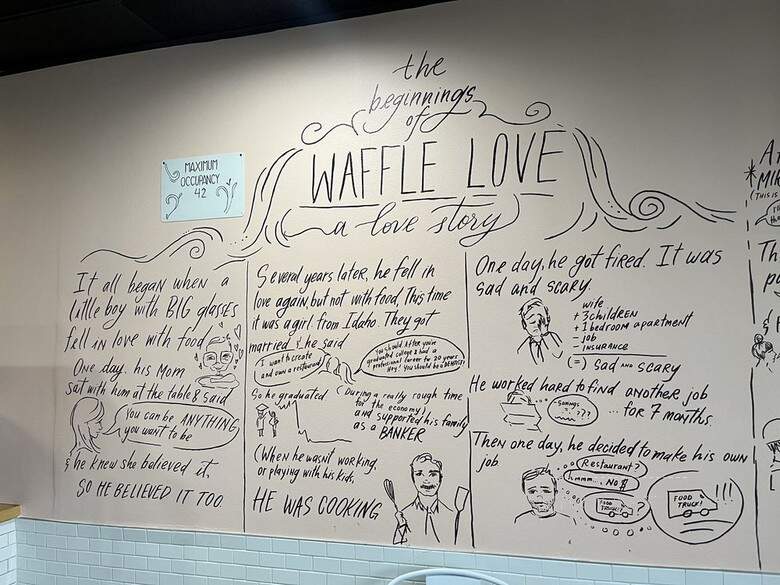 the
beginnings
of
WAFFLE LOVE
a love story
MAXIMUM
OCCUPANCY
42
It all began when a
little boy with BIG glasses
fell in love with food
One day, his Mom
sat with him at the table & said
You can be ANYTHING
you want to be
& he knew she believed it,
SO HE BELIEVED IT TOO.
Several years later, he fell in
love again, but not with food. This time
it was a girl from Idaho. They got
married & he said
I want to create
and own a restaurant
You should. After you've
graduated college & had a
professional career for 20 years
Hey! You should be a DENTIST
So he graduated
(During a really rough time
for the economy)
and supported his family
as a BANKER
(When he wasn't working,
or playing with his kids,
HE WAS COOKING
One day, he got fired. It was
sad and scary.
wife
+ 3 children
+ 1 bedroom apartment
- job
- insurance
(=) sad and scary
He worked hard to find another job
-Savings
= ???
... for 7 months.
Then one day, he decided to make his own
job
Restaurant?
hmmm... No $
FOOD
TRUCK?
?
FOOD
TRUCK!
!!!
*MIK
(THIS IS
Th